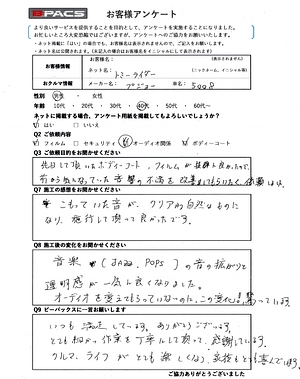 PACS お客様アンケート
より良いサービスを提供することを目的として、アンケートを実施することになりました。
お忙しいところ大変恐縮ではございますが、アンケートへのご協力をお願いいたします。
・ネット掲載に「はい」の場合でも、お客様名は表示されませんので、ご記入をお願いします。
お客様情報
お客様名:
(表示されません)
ネット名: トミーライダー (ニックネーム、イニシャル等)
おクルマ情報
メーカー名: プジョー 車名: 5008
性別 男性 ・ 女性
年齢 10代 ・ 20代 ・ 30代 ・ 40代 ・ 50代 ・ 60代~
ネットに掲載する場合、アンケート用紙を掲載してもよろしいでしょうか?
はい □ いいえ
Q2 ご依頼内容
フィルム □ セキュリティ オーディオ関係 ボディーコート
Q3 ご依頼目的をお聞かせください
先日して頂いたボディーコート、フィルムが 良かったので、
前から気になっていた音響の不満を改善
Q7 施工の感想をお聞かせください
こもっていた音が、クリアな自然なものに
なり、施行して頂って良かったです。
Q8 施工後の変化をお聞かせください
音楽 (JAZZ、POPS)の音の拡がりと
透明感が一気に良くなりました。
オーディオを変えてもらっていないのに、この変化は驚いています。
Q9 ピーパックスに一言お願いします
いつも 満足しています。ありがとうございます。
とても細かい作業を丁寧にして頂って、感謝しています。
クルマ、ライフがとても楽しくなり、家族もとても喜んでいます。
ご協力ありがとうございました